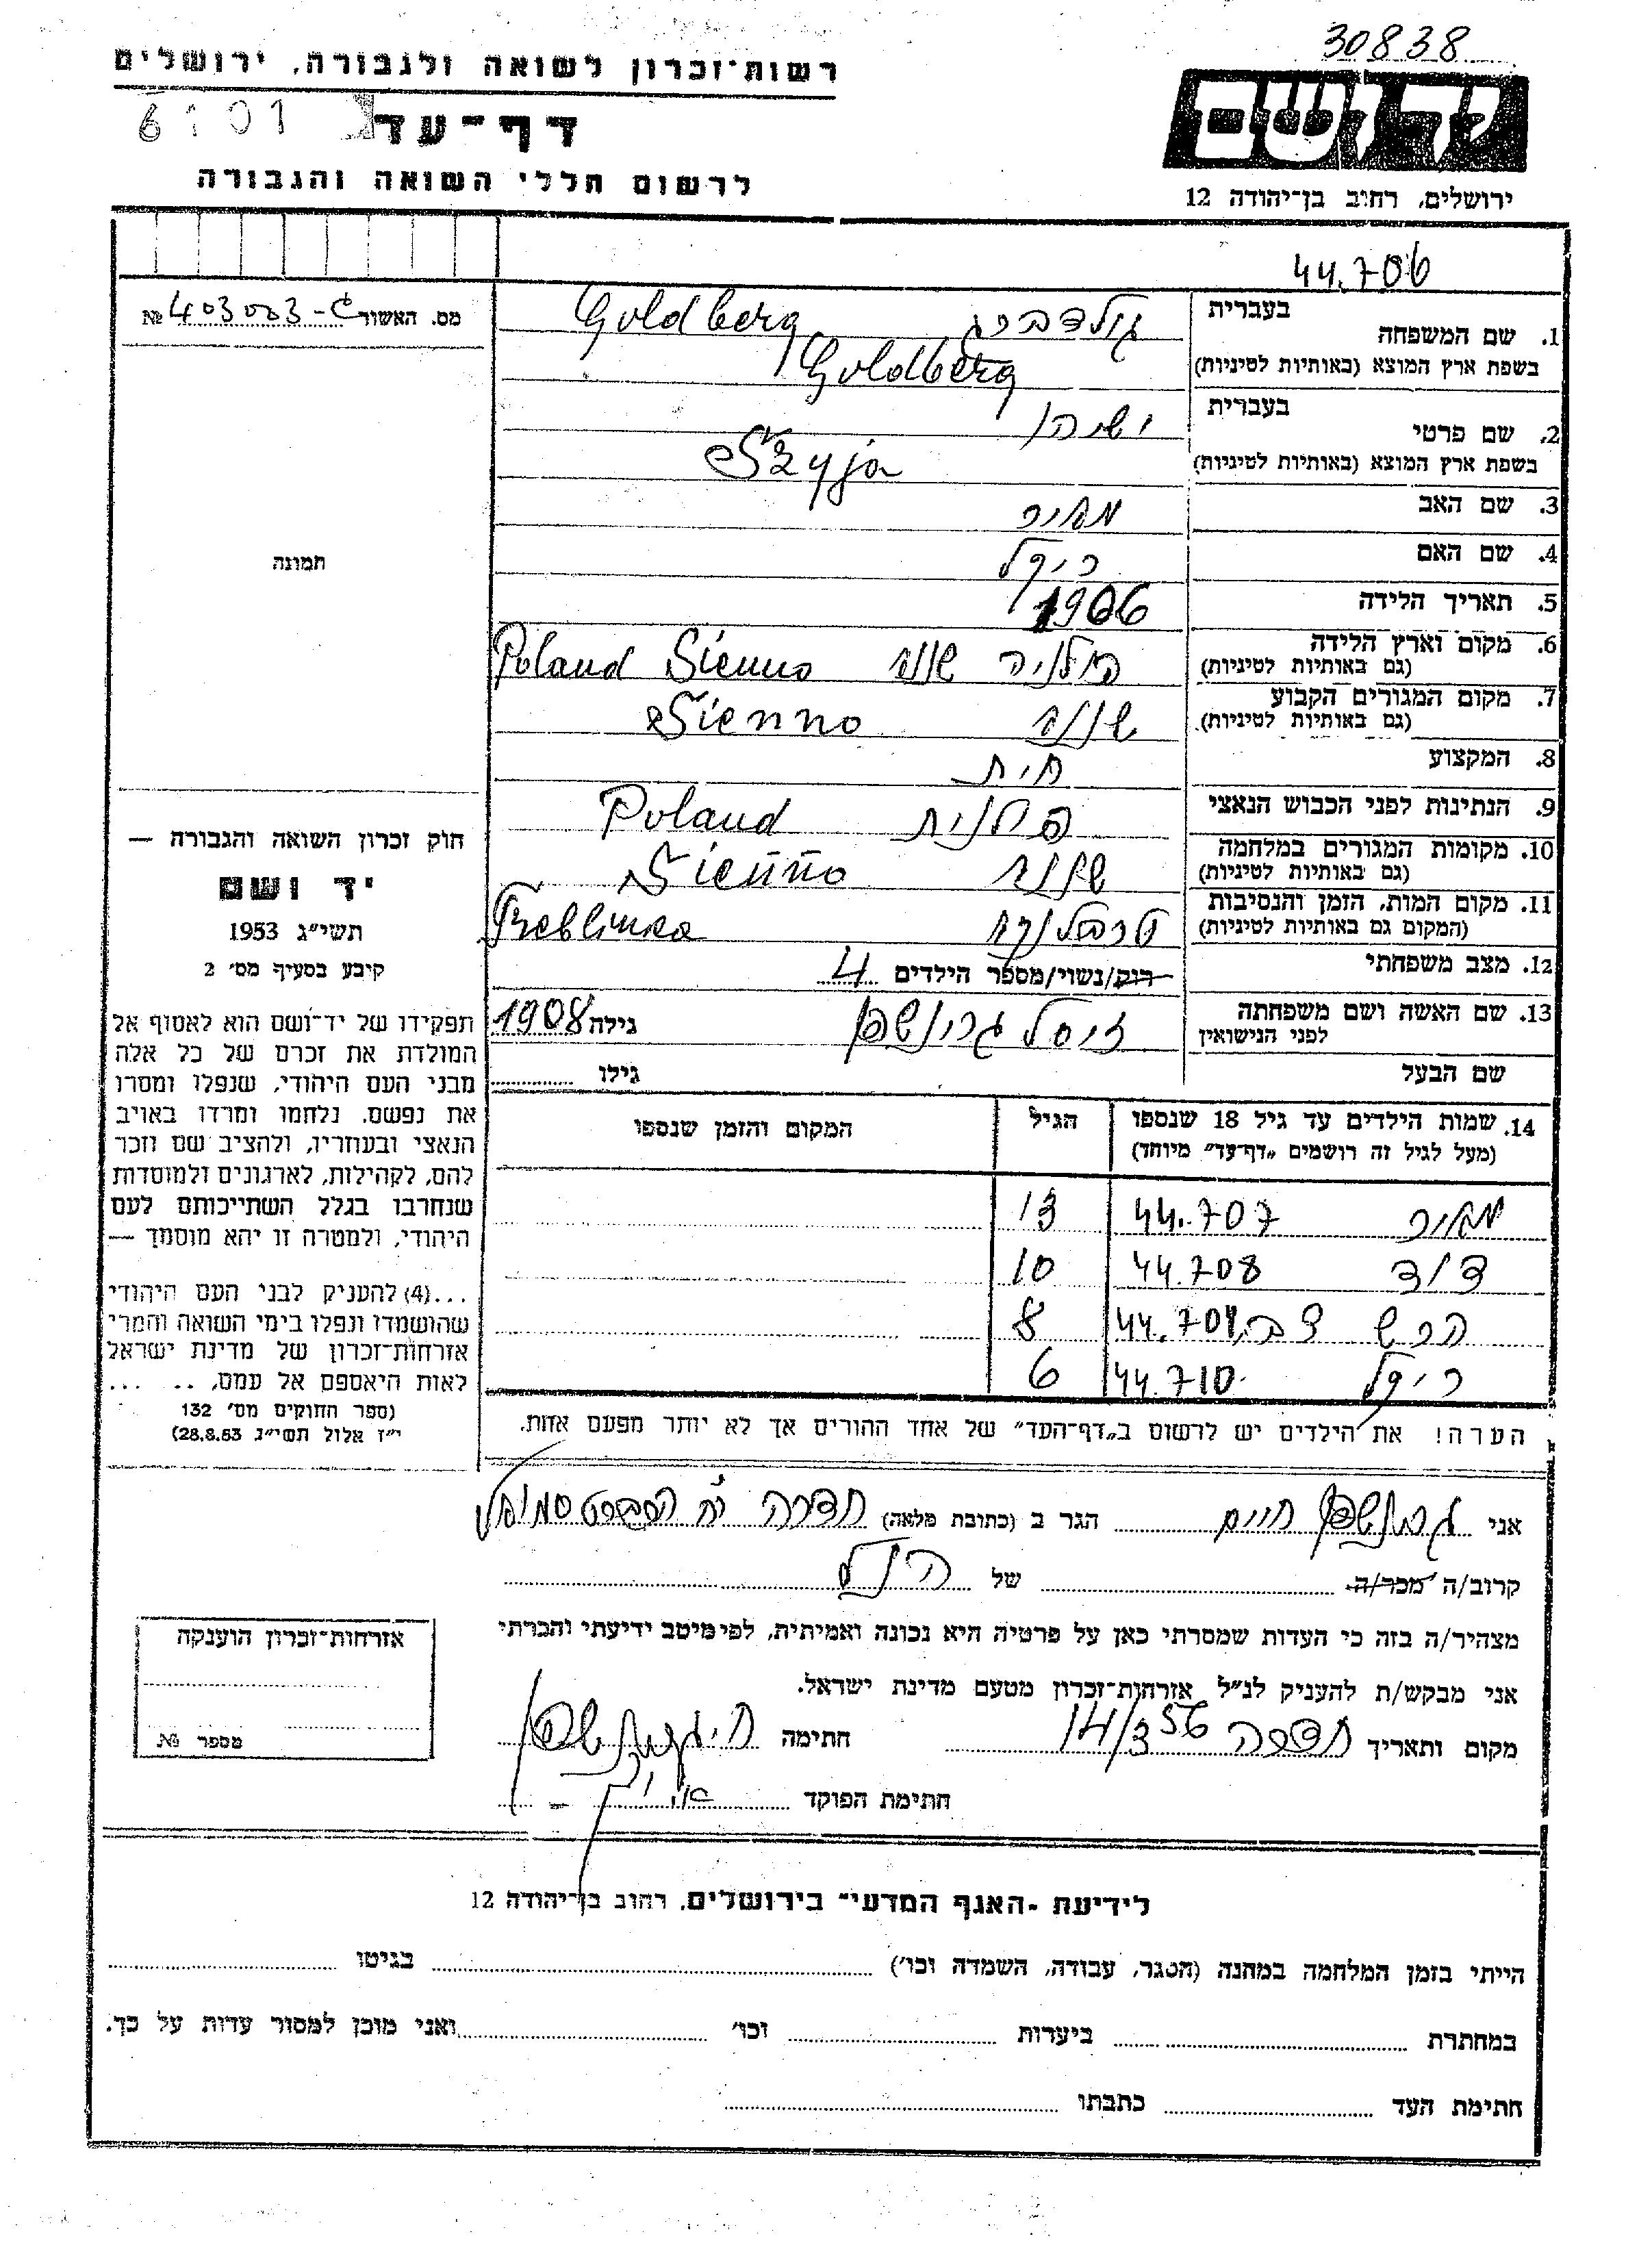 30838
רשות־זכרון לשואה ולגבורה, ירושלים
יד ושם
6101
דף־עד
לרשום חללי השואה והגבורה
ירושלים, רחוב בן־יהודה 12
44.706
מס. האשור № 403003-ג
1. שם המשפחה בעברית גולדברג Goldberg
בשפת ארץ המוצא (באותיות לטיניות) Goldberg
2. שם פרטי בעברית ישיהו
בשפת ארץ המוצא (באותיות לטיניות) Szyja
3. שם האב מאיר
4. שם האם ריפל
5. תאריך הלידה 1906
6. מקום וארץ הלידה (גם באותיות לטיניות) פולניה שנה Poland Sienno
7. מקום המגורים הקבוע (גם באותיות לטיניות) Sienno
8. המקצוע חית
9. הנתינות לפני הכבוש הנאצי פולנית Poland
10. מקומות המגורים במלחמה (גם באותיות לטיניות) Sienno
11. מקום המות, הזמן והנסיבות (המקום גם באותיות לטיניות) טרבלינקה Treblinka
12. מצב משפחתי רוק/נשוי/מספר הילדים 4
13. שם האשה ושם משפחתה לפני הנישואין זיסל גרינשפן גילה 1908
שם הבעל גילו
תמונה
חוק זכרון השואה והגבורה —
יד ושם
תשי״ג 1953
קיבע בסעיף מס׳ 2
תפקידו של יד־ושם הוא לאסוף אל
המולדת את זכרם של כל אלה
מבני העם היהודי, שנפלו ומסרו
את נפשם, נלחמו ומרדו באויב
הנאצי ובעוזריו, ולהציב שם וזכר
להם, לקהילות, לארגונים ולמוסדות
שנחרבו בגלל השתייכותם לעם
היהודי, ולמטרה זו יהא מוסמך —
...(4) להעניק לבני העם היהודי
שהושמדו ונפלו בימי השואה והמרי
אזרחות־זכרון של מדינת ישראל
לאות היאספם אל עמם, .. ...
(ספר החוקים מס׳ 132
י״ז אלול תשי״ג 28.8.53)
14. שמות הילדים עד גיל 18 שנספו הגיל המקום והזמן שנספו
(מעל לגיל זה רושמים „דף־עד״ מיוחד)
מאיר 44.707 13
דוד 44.708 10
הרש צבי 44.709 8
ריפל 44.710 6
הערה! את הילדים יש לרשום ב„דף־העד״ של אחד ההורים אך לא יותר מפעם אחת.
אני גרינשפן חיים הגר ב (כתובת מלאה) חדרה
קרוב/ה מכר/ה של הנ״ל
מצהיר/ה בזה כי העדות שמסרתי כאן על פרטיה היא נכונה ואמיתית, לפי מיטב ידיעתי והכרתי
אני מבקש/ת להעניק לנ״ל אזרחות־זכרון מטעם מדינת ישראל.
מקום ותאריך חדרה 14/3 56 חתימה ח. גרינשפן
חתימת הפוקד
אזרחות־זכרון הוענקה
מספר №
לידיעת ״האגף המדעי״ בירושלים, רחוב בן־יהודה 12
הייתי בזמן המלחמה במחנה (הסגר, עבודה, השמדה וכו׳) בגיטו
במחתרת ביערות וכו׳ ואני מוכן למסור עדות על כך.
חתימת העד כתבתו